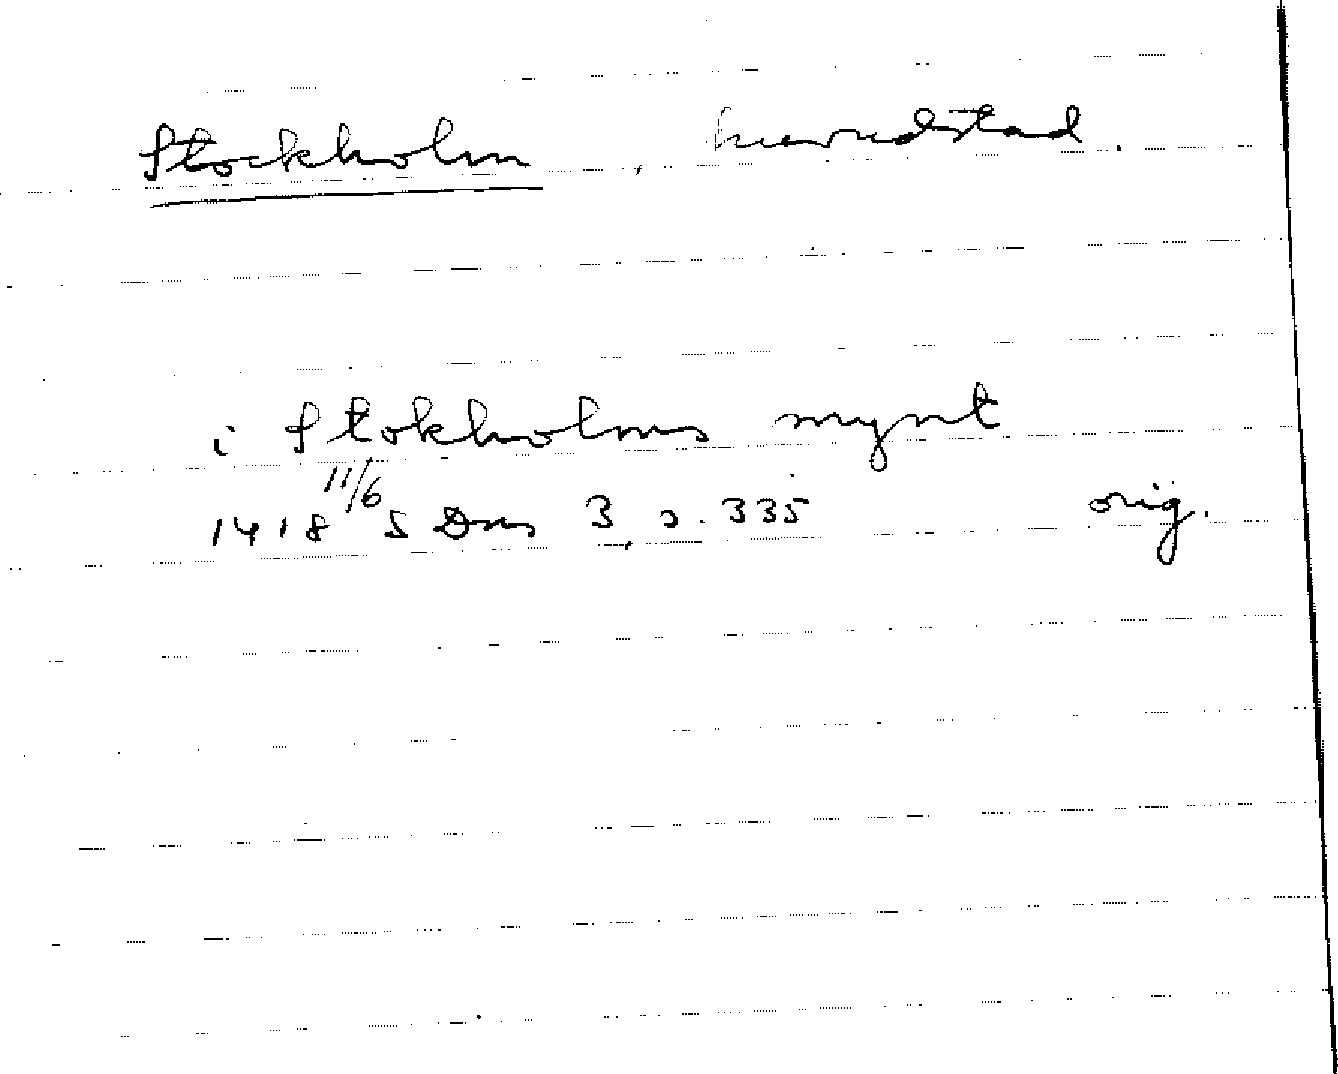 Stockholm, huvudstad.
i Stokholms mynt
1418 11/6 SDns 3, s. 335 orig.